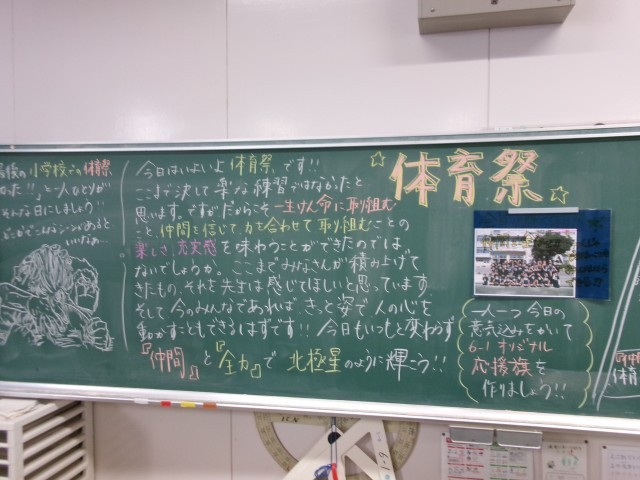 体育祭
最後の小学校での体育祭
と一人ひとりが
そんな日にしましょう!!
今日はいよいよ体育祭です!!
ここまで決して楽な練習ではなかったと
思います。ですがだからこそ一生けん命に取り組む
こと、仲間を信じて力を合わせて取り組むことの
楽しさ、充実感を味わうことができたのでは
ないでしょうか。ここまでみなさんが積み上げて
きたもの、それを先生は感じてほしいと思っています。
そして今のみんなであれば、きっと姿で人の心を
動かすこともできるはずです!! 今日もいつもと変わらず
『仲間』と『全力』で北極星のように輝こう!!
一人一つ今日の
意気込みをかいて
6-1 オリジナル
応援旗を
作りましょう!!